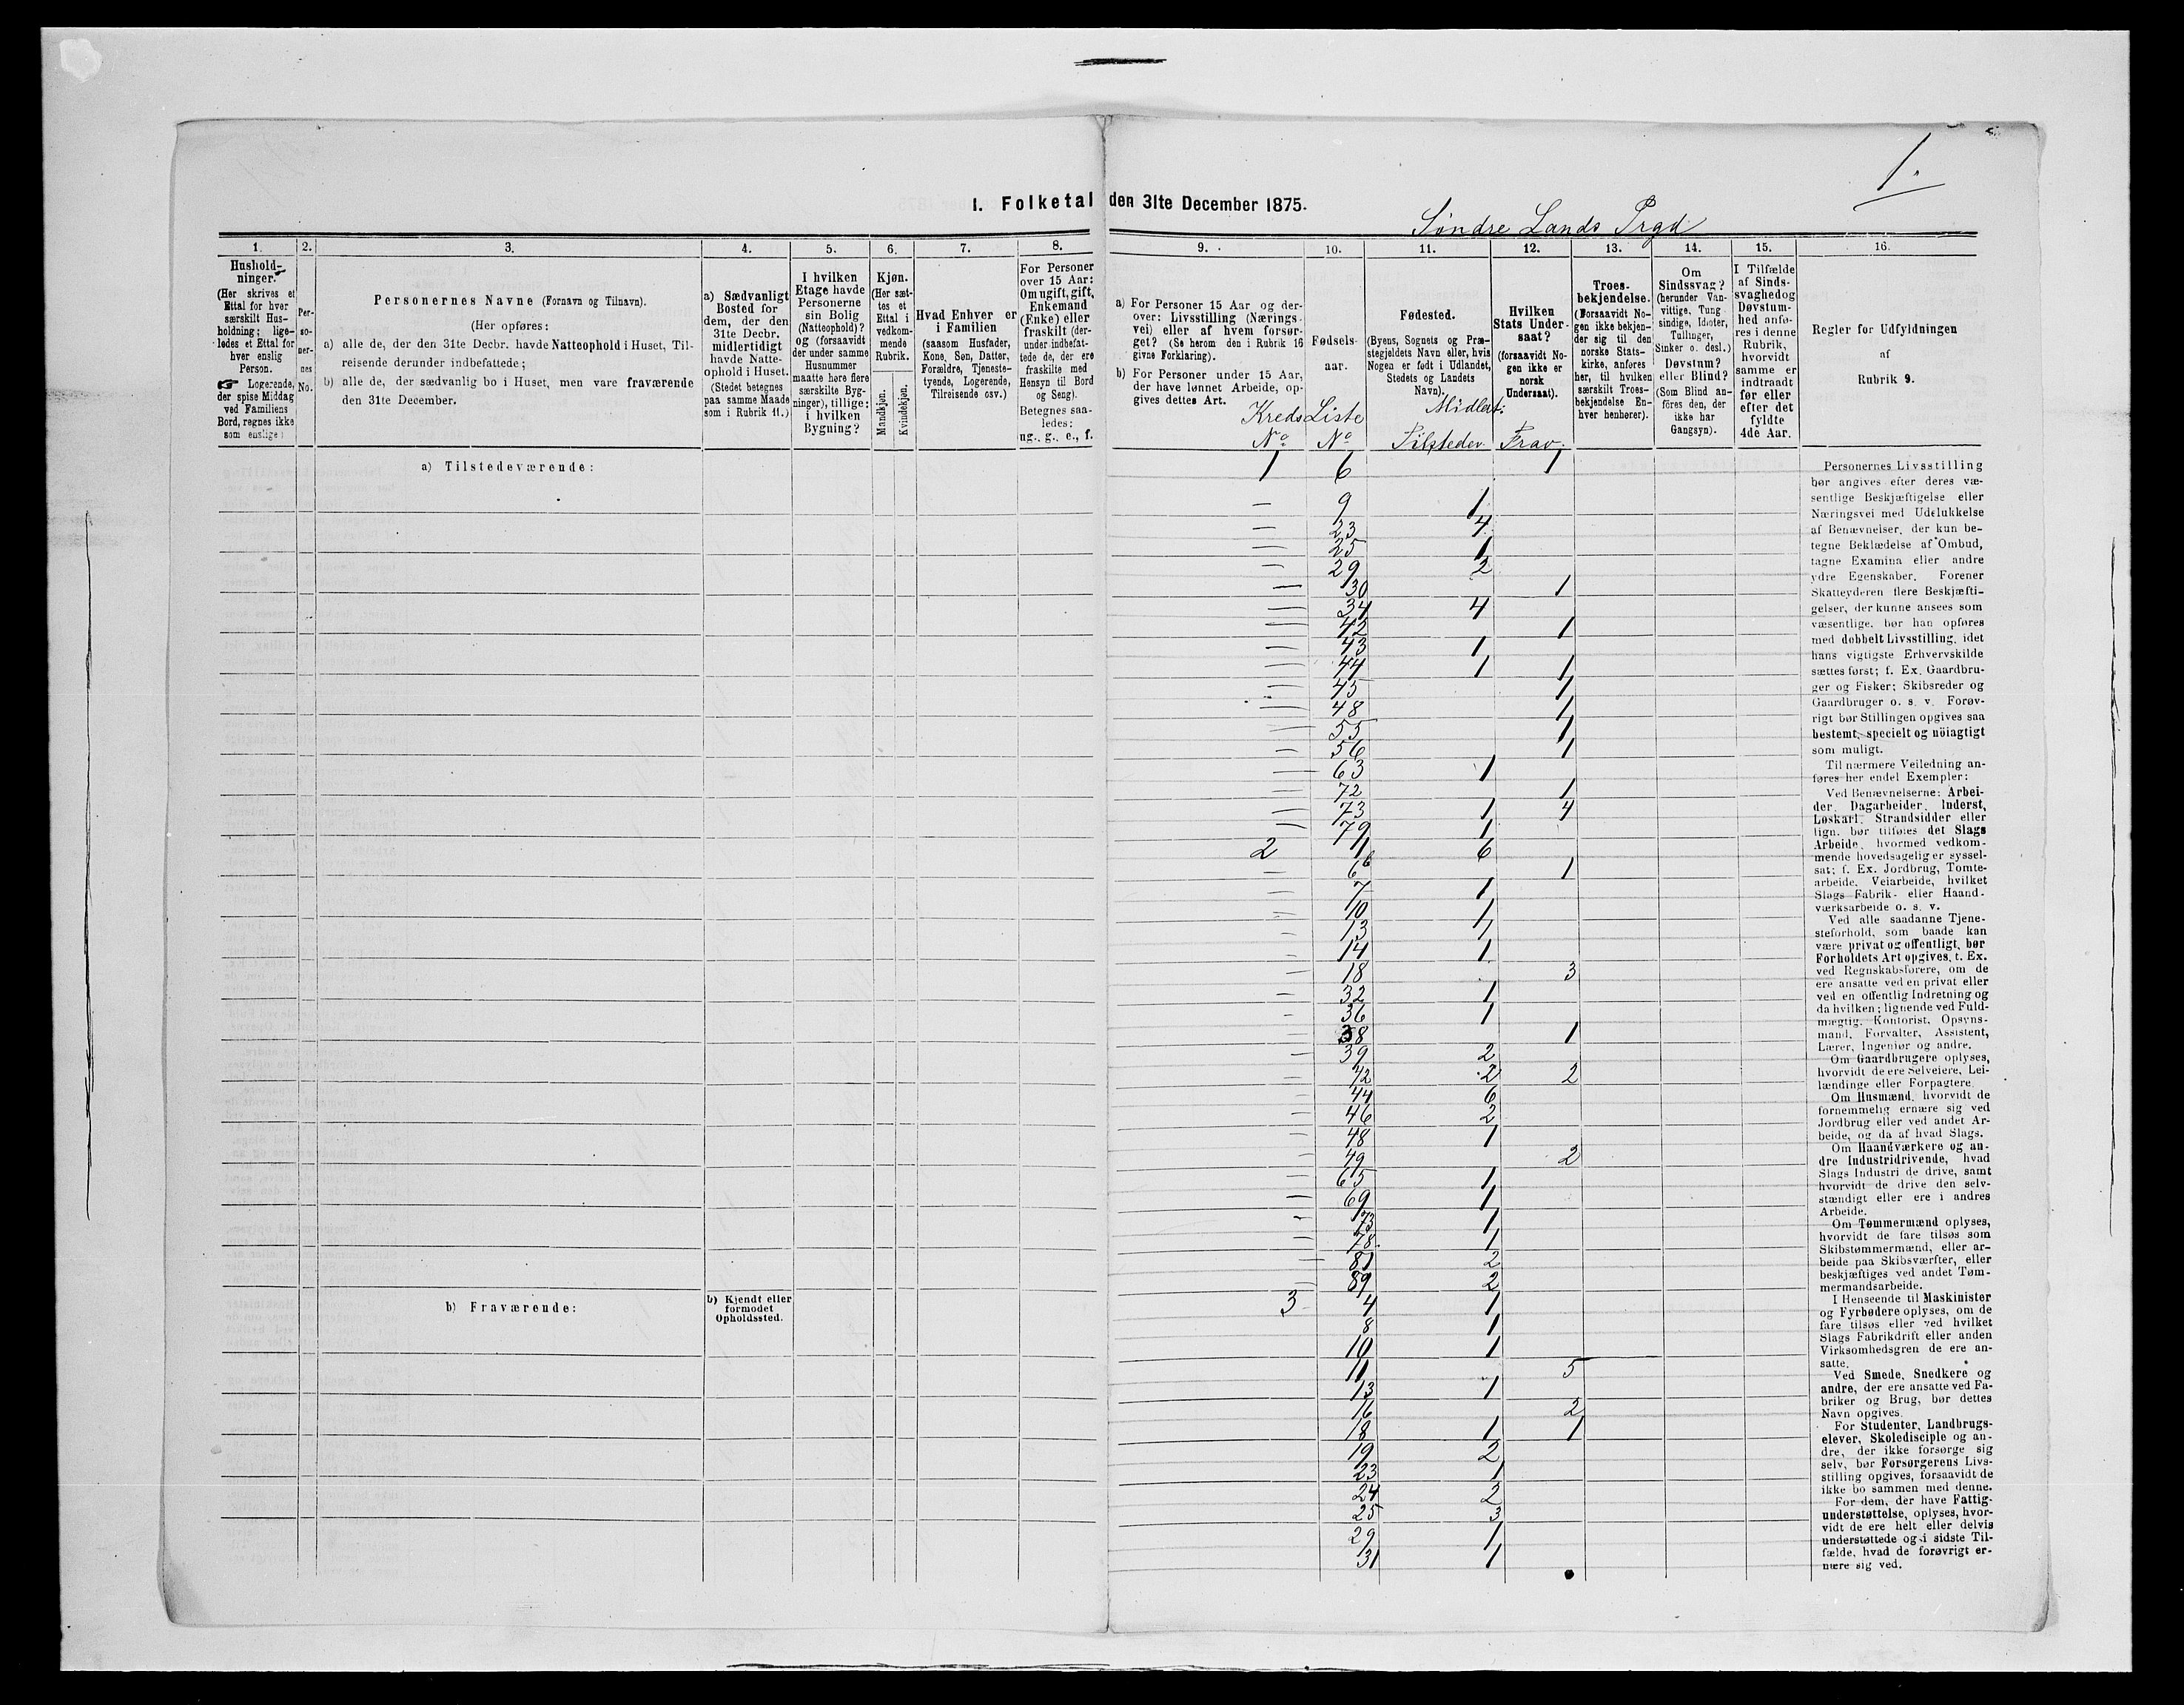 1.
I. Folketal den 31te December 1875.
Søndre Lands Prgd
1.
Hushold-
ninger.
(Her skrives et
Ettal for hver
særskilt Hus-
holdning; lige-
ledes et Ettal for
hver enslig
Person.
☛ Logerende,
der spise Middag
ved Familiens
Bord, regnes ikke
som enslige)
2.
Per-
so-
ner-
nes
No.
3.
Personernes Navne (Fornavn og Tilnavn).
(Her opføres:
a) alle de, der den 31te Decbr. havde Natteophold i Huset, Til-
reisende derunder indbefattede;
b) alle de, der sædvanlig bo i Huset, men vare fraværende
den 31te December.
4.
a) Sædvanligt
Bosted for
dem, der den
31te Decbr.
midlertidigt
havde Natte-
ophold i Huset.
(Stedet betegnes
paa samme Maade
som i Rubrik 11.)
5.
I hvilken
Etage havde
Personerne
sin Bolig
(Natteophold)?
og (forsaavidt
der under samme
Husnummer
maatte høre flere
særskilte Byg-
ninger), tillige:
i hvilken
Bygning?
6.
Kjøn.
(Her sæt-
tes et
Ettal i
vedkom-
mende
Rubrik.
Mandkjøn.
Kvindekjøn.
7.
Hvad Enhver er
i Familien
(saasom Husfader,
Kone, Søn, Datter,
Forældre, Tjeneste-
tyende, Logerende,
Tilreisende osv.)
8.
For Personer
over 15 Aar:
Om ugift, gift,
Enkemand
(Enke) eller
fraskilt (der-
under indbefat-
tede de, der ere
fraskilte med
Hensyn til Bord
og Seng).
Betegnes saa-
ledes:
ug., g., e., f.
9.
a) For Personer 15 Aar og der-
over: Livsstilling (Nærings-
vei) eller af hvem forsør-
get? (Se herom den i Rubrik 16
givne Forklaring).
b) For Personer under 15 Aar,
der have lønnet Arbeide, op-
gives dettes Art.
10.
Fødsels-
aar.
11.
Fødested.
(Byens, Sognets og Præ-
stegjeldets Navn eller, hvis
Nogen er født i Udlandet,
Stedets og Landets
Navn).
12.
Hvilken
Stats Under-
saat?
(forsaavidt No-
gen ikke er
norsk
Undersaat).
13.
Troes-
bekjendelse.
(Forsaavidt No-
gen ikke bekjen-
der sig til den
norske Stats-
kirke, anføres
her, til hvilken
særskilt Troes-
bekjendelse En-
hver henhører).
14.
Om
Sindssvag?
(herunder Van-
vittige, Tung-
sindige, Idioter,
Tullinger,
Sinker o. desl.)
Døvstum?
eller Blind?
(Som Blind an-
føres den, der
ikke har
Gangsyn).
15.
I Tilfælde
af Sinds-
svaghed og
Døvstum-
hed anfø-
res i denne
Rubrik,
hvorvidt
samme er
indtraadt
før eller
efter det
fyldte
4de Aar.
16.
Regler for Udfyldningen
af
Rubrik 9.
Kreds Liste Midlert:
No No Tilsteder Frav.
a) Tilstedeværende:
1 6 1
— 9 1
— 23 4
— 25 1
— 29 2
— 30 1
— 34 4
— 42 1
— 43 1
— 44 1 1
— 45 1
— 48 1
— 55 1
— 56 1
— 63 1
— 72 1
— 73 1 4
— 79 1
2 1 6
— 6b 1
— 7 1
— 10 1
— 13 1
— 14 1
— 18 3
— 32 1
— 36 1
— 38 1
— 39 2
— 42 2 2
— 44 6
— 46 2
— 48 1
— 49 2
— 65 1
— 69 1
— 73 1
— 78 1
— 81 2
— 89 2
3 4 1
8 1
10 1
11 5
13 1
16 2
18 1 1
19 2
23 1
24 2
25 3
29 1
31 1
b) Fraværende:
b) Kjendt eller
formodet
Opholdssted.
Personernes Livsstilling
bør angives efter deres væ-
sentlige Beskjæftigelse eller
Næringsvei med Udelukkelse
af Benævnelser, der kun be-
tegne Beklædelse af Ombud,
tagne Examina eller andre
ydre Egenskaber. Forener
Skatteyderen flere Beskjæfti-
gelser, der kunne ansees som
væsentlige, bør han opføres
med dobbelt Livsstilling, idet
hans vigtigste Erhvervskilde
sættes først; f. Ex. Gaardbru-
ger og Fisker; Skibsreder og
Gaardbruger o. s. v. Forøv-
rigt bør Stillingen opgives saa
bestemt, specielt og nöiagtigt
som muligt.
Til nærmere Veiledning an-
føres her endel Exempler:
Ved Benævnelserne: Arbei-
der, Dagarbeider, Inderst,
Løskarl, Strandsidder eller
lign. bør tilføies det Slags
Arbeide, hvormed vedkom-
mende hovedsagelig er syssel-
sat; f. Ex. Jordbrug, Tomte-
arbeide, Veiarbeide, hvilket
Slags Fabrik- eller Haand-
værksarbeide o. s. v.
Ved alle saadanne Tjene-
steforhold, som baade kan
være privat og offentligt, bør
Forholdets Art opgives, f. Ex.
ved Regnskabsførere, om de
ere ansatte ved en privat eller
ved en offentlig Indretning og
da hvilken; lignende ved Fuld-
mægtig, Kontorist, Opsyns-
mand, Forvalter, Assistent,
Lærer, Ingeniør og andre.
Om Gaardbrugere oplyses,
hvorvidt de ere Selveiere, Lei-
lændinge eller Forpagtere.
Om Husmænd, hvorvidt de
fornemmelig ernære sig ved
Jordbrug eller ved andet Ar-
beide, og da af hvad Slags.
Om Haandværkere og an-
dre Industridrivende, hvad
Slags Industri de drive, samt
hvorvidt de drive den selv-
stændigt eller ere i andres
Arbeide.
Om Tømmermænd oplyses,
hvorvidt de fare tilsøs som
Skibstømmermænd, eller ar-
beide paa Skibsværfter, eller
beskjæftiges ved andet Tøm-
mermandsarbeide.
I Henseende til Maskinister
og Fyrbødere oplyses, om de
fare tilsøs eller ved hvilket
Slags Fabrikdrift eller anden
Virksomhedsgren de ere an-
satte.
Ved Smede, Snedkere og
andre, der ere ansatte ved Fa-
briker og Brug, bør dettes
Navn opgives.
For Studenter, Landbrugs-
elever, Skoledisciple og an-
dre, der ikke forsørge sig
selv, bør Forsørgerens Livs-
stilling opgives, forsaavidt de
ikke bo sammen med denne.
For dem, der have Fattig-
understøttelse, oplyses, hvor-
vidt de ere helt eller delvis
understøttede og i sidste Til-
fælde, hvad de forøvrigt er-
nære sig ved.